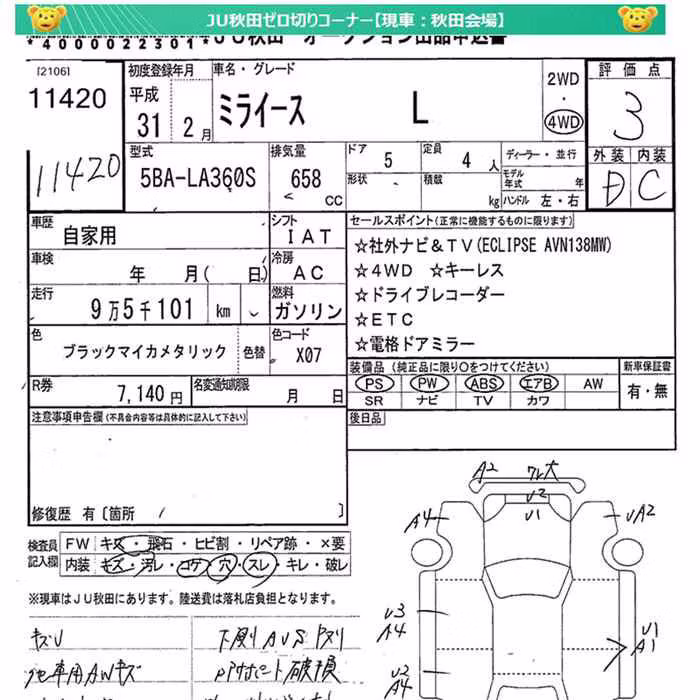 JU秋田ゼロ切りコーナー【現車：秋田会場】
*4000022301*JU秋田 オークション出品申込書
[2106]
11420
11420
初度登録年月
平成
31 2月
車名・グレード
ミライース L
2WD
・
4WD
評価点
3
外装 内装
D C
型式
5BA-LA360S
排気量
658
CC
ドア
5
定員
4人
形状
積載
kg
ディーラー・並行
モデル年式 年
ハンドル 左・右
車歴
自家用
シフト
IAT
車検
年 月( 日)
冷房
AC
走行
9万5千101 km
燃料
ガソリン
色
ブラックマイカメタリック
色替
色コード
X07
R券
7,140円
名変通知期限
月 日
セールスポイント(正常に機能するものに限ります)
☆社外ナビ&TV(ECLIPSE AVN138MW)
☆4WD ☆キーレス
☆ドライブレコーダー
☆ETC
☆電格ドアミラー
装備品 (純正品に限り○をつけてください)
PS PW ABS エアB AW
SR ナビ TV カワ
新車保証書
有・無
後日品
注意事項申告欄(不具合内容等は具体的に記入して下さい)
修復歴 有〔箇所 〕
検査員記入欄
FW キズ・飛石・ヒビ割・リペア跡・×要
内装 キズ・汚レ・コゲ・穴・スレ・キレ・破レ
※現車はJU秋田にあります。陸送費は落札店負担となります。
キズU
他車用AWキズ
下廻りAVSサビ
破損
A2
ワレ大
U2
U1
A4
UA2
U3
A4
U1
A1
U2
A4